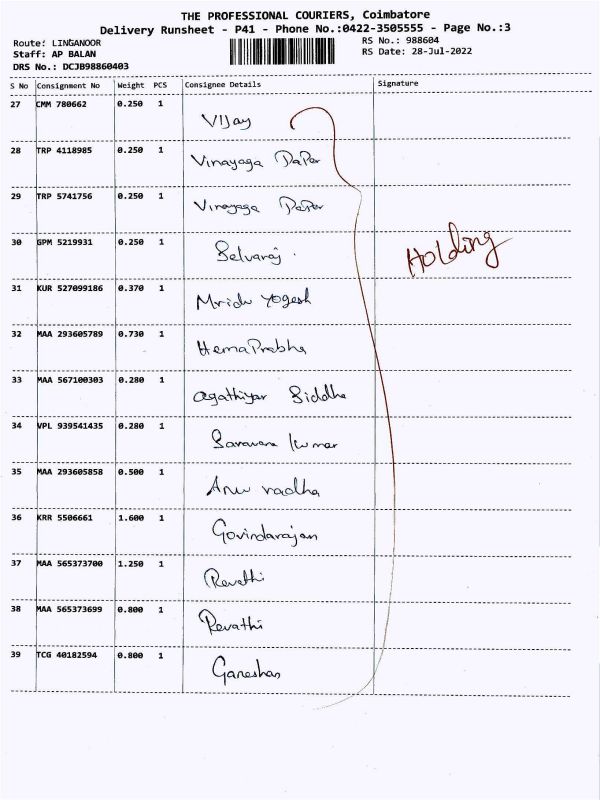 THE PROFESSIONAL COURIERS, Coimbatore
Delivery Runsheet - P41 - Phone No.:0422-3505555 - Page No.:3
Route: LINGANOOR
RS No.: 988604
Staff: AP BALAN
RS Date: 28-Jul-2022
DRS No.: DCJB98860403
S No Consignment No Weight PCS Consignee Details Signature
27 CMM 780662 0.250 1 Vijay
28 TRP 4118985 0.250 1 Vinayaga PaPer
29 TRP 5741756 0.250 1 Vinayaga PaPer
30 GPM 5219931 0.250 1 Selvaraj Holding
31 KUR 527099186 0.370 1 Mridu Yogesh
32 MAA 293605789 0.730 1 HemaPrabha
33 MAA 567100303 0.280 1 agathiyar Siddha
34 VPL 939541435 0.280 1 Saravana Kumar
35 MAA 293605858 0.500 1 Anu radha
36 KRR 5506661 1.600 1 Govindarajan
37 MAA 565373700 1.250 1 Revathi
38 MAA 565373699 0.800 1 Revathi
39 TCG 40182594 0.800 1 Ganeshan